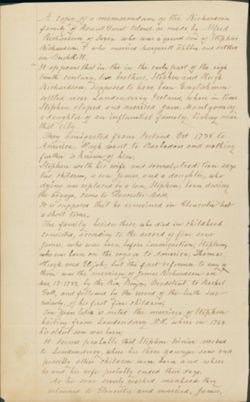 A copy of a memorandum of the Richardson
family of Mount Desert Island as made by Alfred
Richardson of Jersey who was a grand son of Stephen
Richardson, & who married Margaret
in Bucksp
It appears that in the in the early part of the eigh
teenth century, two brothers, Stephen and Hugh
Richardson, supposed to have been Englishmen
settled near Londonderry Ireland, where in time
Stephen eloped and married Jane
a daughter of an influential family, living near
that city.
They emigrated from Ireland Oct 1738 to
America, Hugh went to Barbadoes and nothing
further is known of him.
Stephen with his wife and several, tradition says
two children, a son James, and a daughter, who
dying was replaced by a son, Stephen, born during
the voyage, came to Gloucester Mass.
It is supposed that he remained in Gloucester but
a short time.
The family, besides those who died in childhood
consisted, according to the record of five sons
James, who was born before immigration, Stephen,
who was born on the voyage to America, Thomas
Hugh and Elijah, but the first reference to any of
them was the marriage of James Richardson in
17 by the Rev.
and followed by the record of the birth
of his first five children
Two years later is noted the marriage of Stephen
hailing from Londonderry N.H. where in 1764
his oldest son was born
It seems probable that Stephen Senior moved
to Londonderry, where his three younger sons and
possibly other children were born and where
he and his wife probably ended their days.
As his sons nearly reached manhood they
returned to Gloucester and married, James,